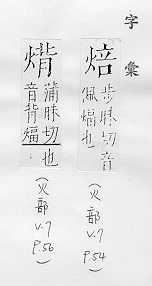 字彙
焙
步昧切音
佩煏也
(火部 v.7 p.54)
蒲昧切也
音背煏
(火部 v.7 p.56)